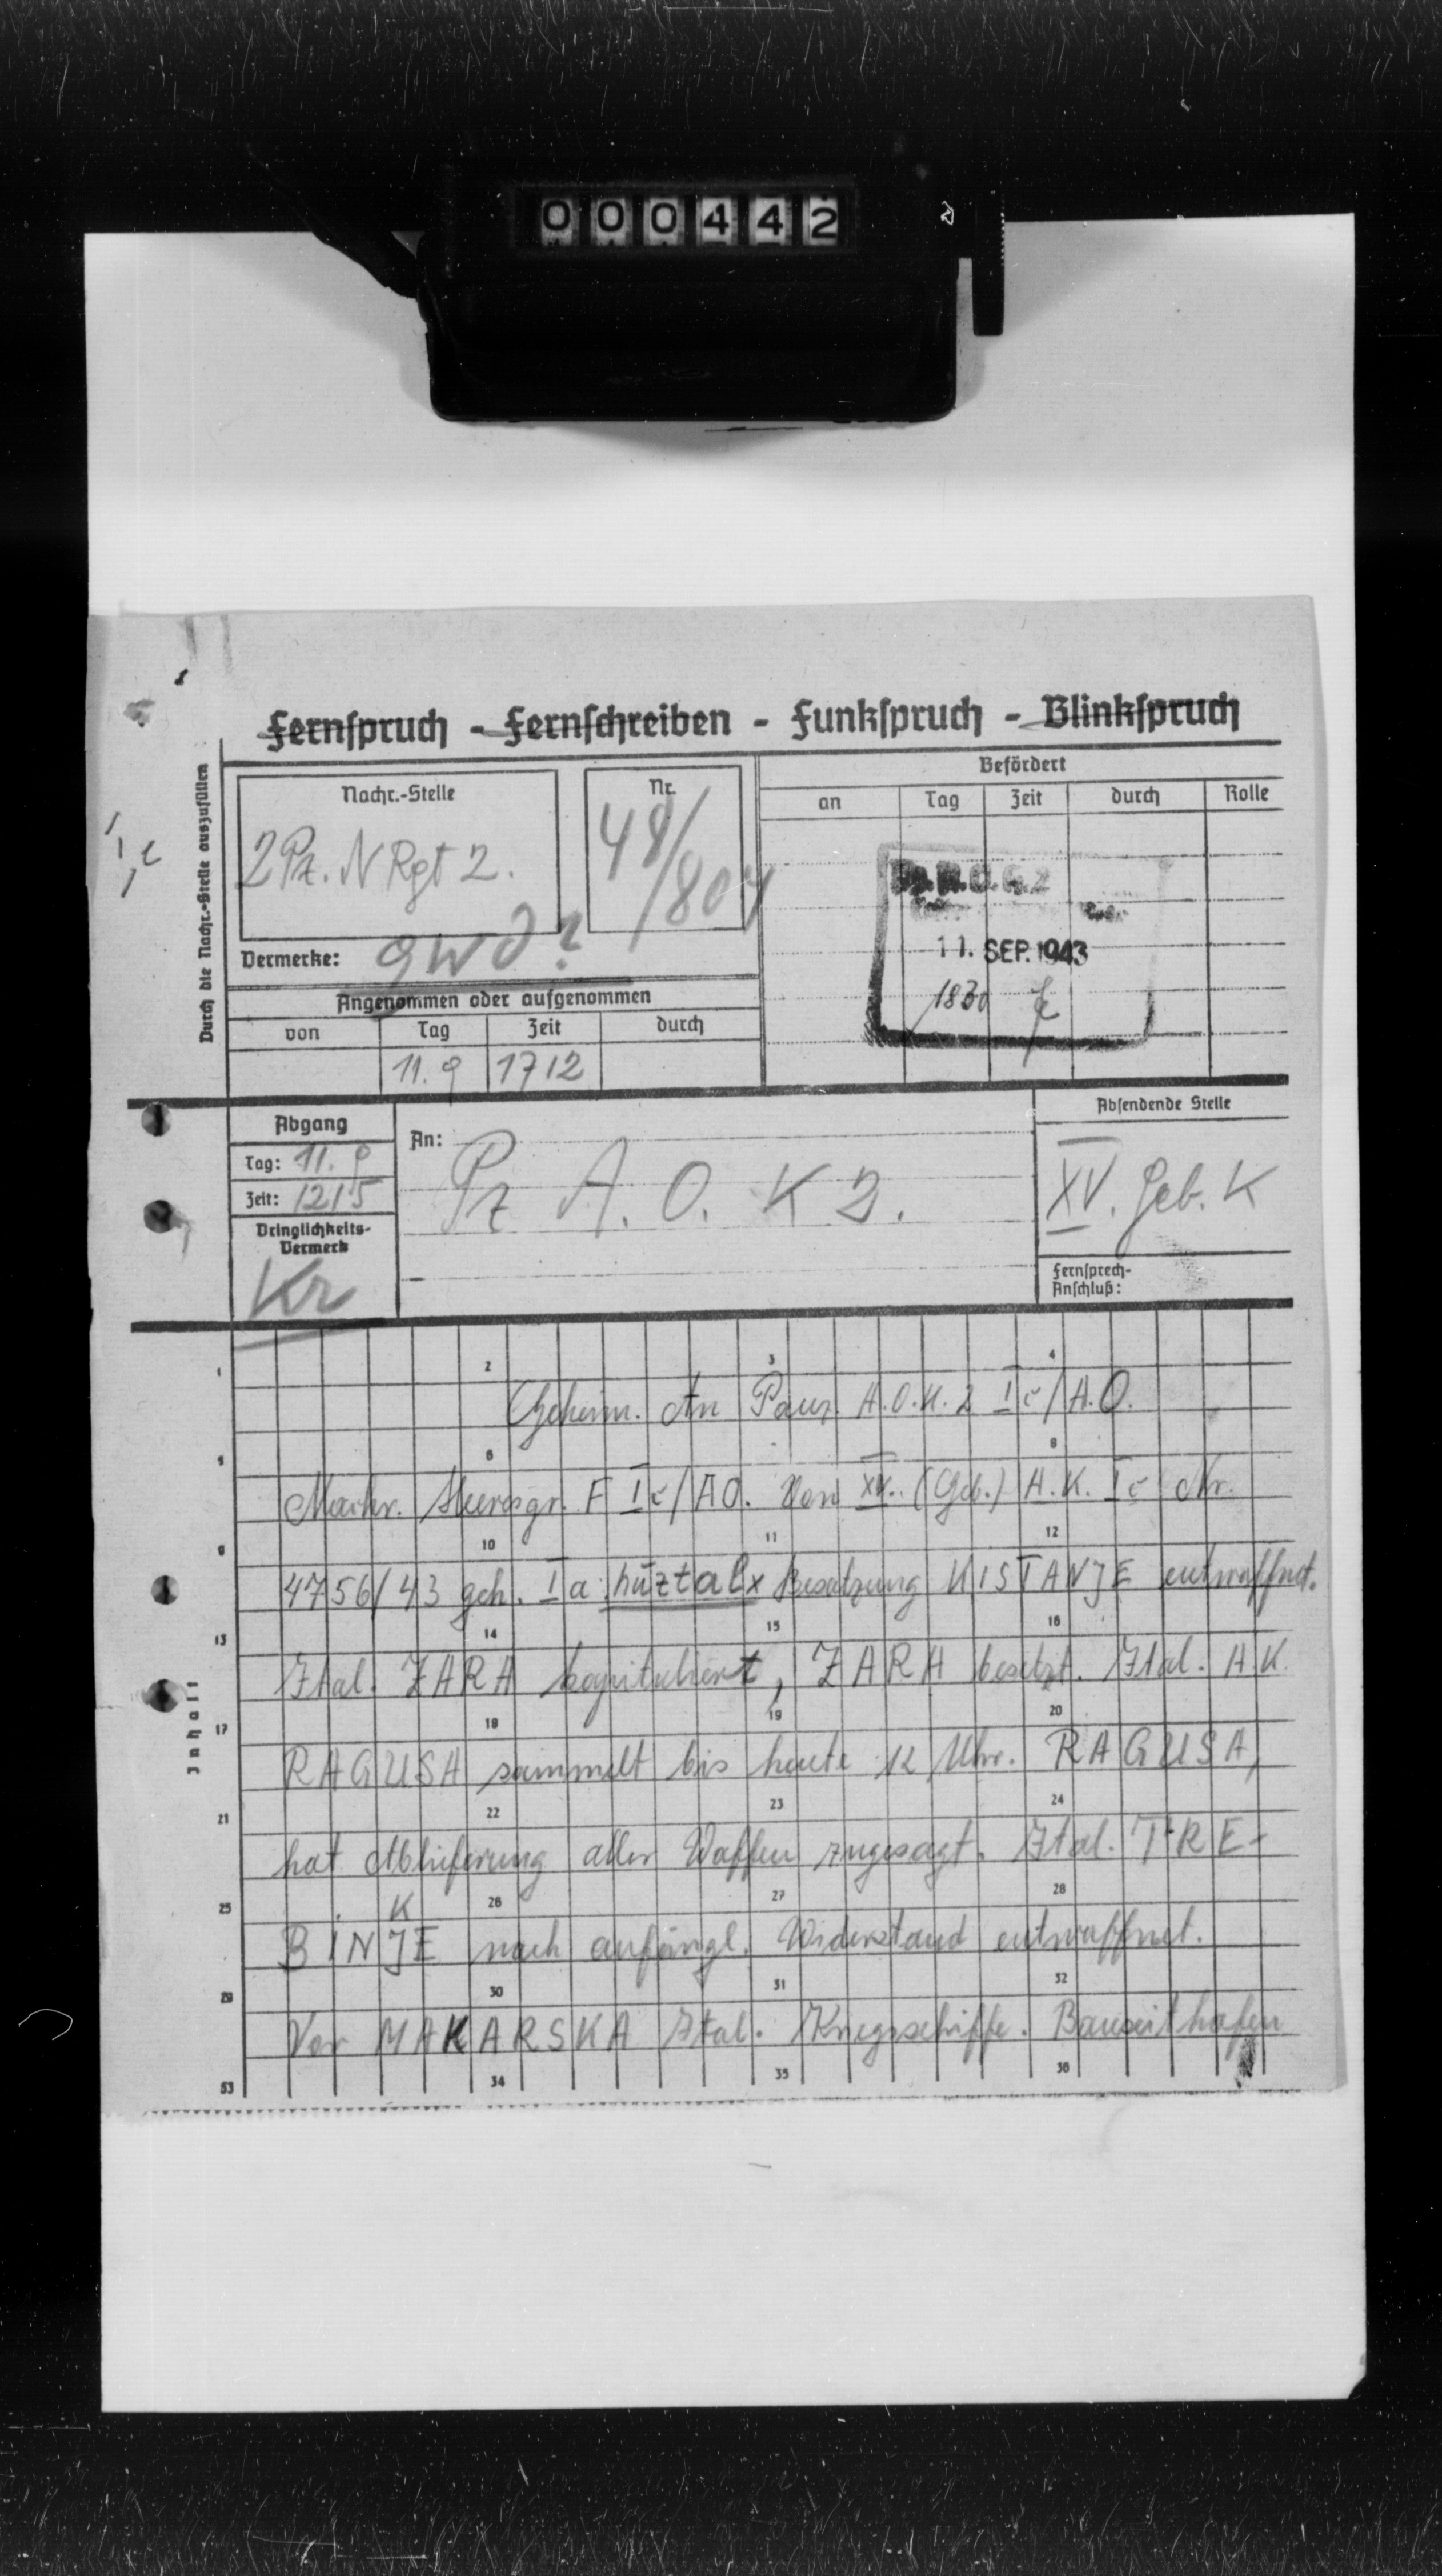 000442
Fernspruch - Fernschreiben - Funkspruch - Blinkspruch
Durch die Nachr.-Stelle auszufüllen
Nachr.-Stelle
2 Pz. N Rgt 2.
Nr.
48/804
Befördert
an Tag Zeit durch Rolle
11. SEP. 1943
1830
Vermerke:
Angenommen oder aufgenommen
von Tag Zeit durch
11.9 1712
Abgang
Tag: 11.9
Zeit: 1215
Dringlichkeits-
Vermerk
Kr
An:
Pz A. O. K 2.
Absendende Stelle
XV. Geb. K
Fernsprech-
Anschluß:
Inhalt
1 2 3 4
Geheim. An Panz. A.O.K. 2 Ic/A.O.
6 8
Nachr. Heeresgr. F Ic/AO. Von XV. (Geb.) A.K. Ic Nr.
9 10 11 12
4756/43 geh. Ia Besatzung KISTANJE entwaffnet.
13 14 15 16
Ital. ZARA kapituliert, ZARA besetzt. Ital. AK
17 18 19 20
RAGUSA sammelt bis heute 12 Uhr. RAGUSA,
21 22 23 24
hat Ablieferung aller Waffen zugesagt. Ital. TRE-
25 K 26 27 28
BINJE nach anfängl. Widerstand entwaffnet.
29 30 31 32
Vor MAKARSKA Ital. Kriegsschiffe.
33 34 35 36